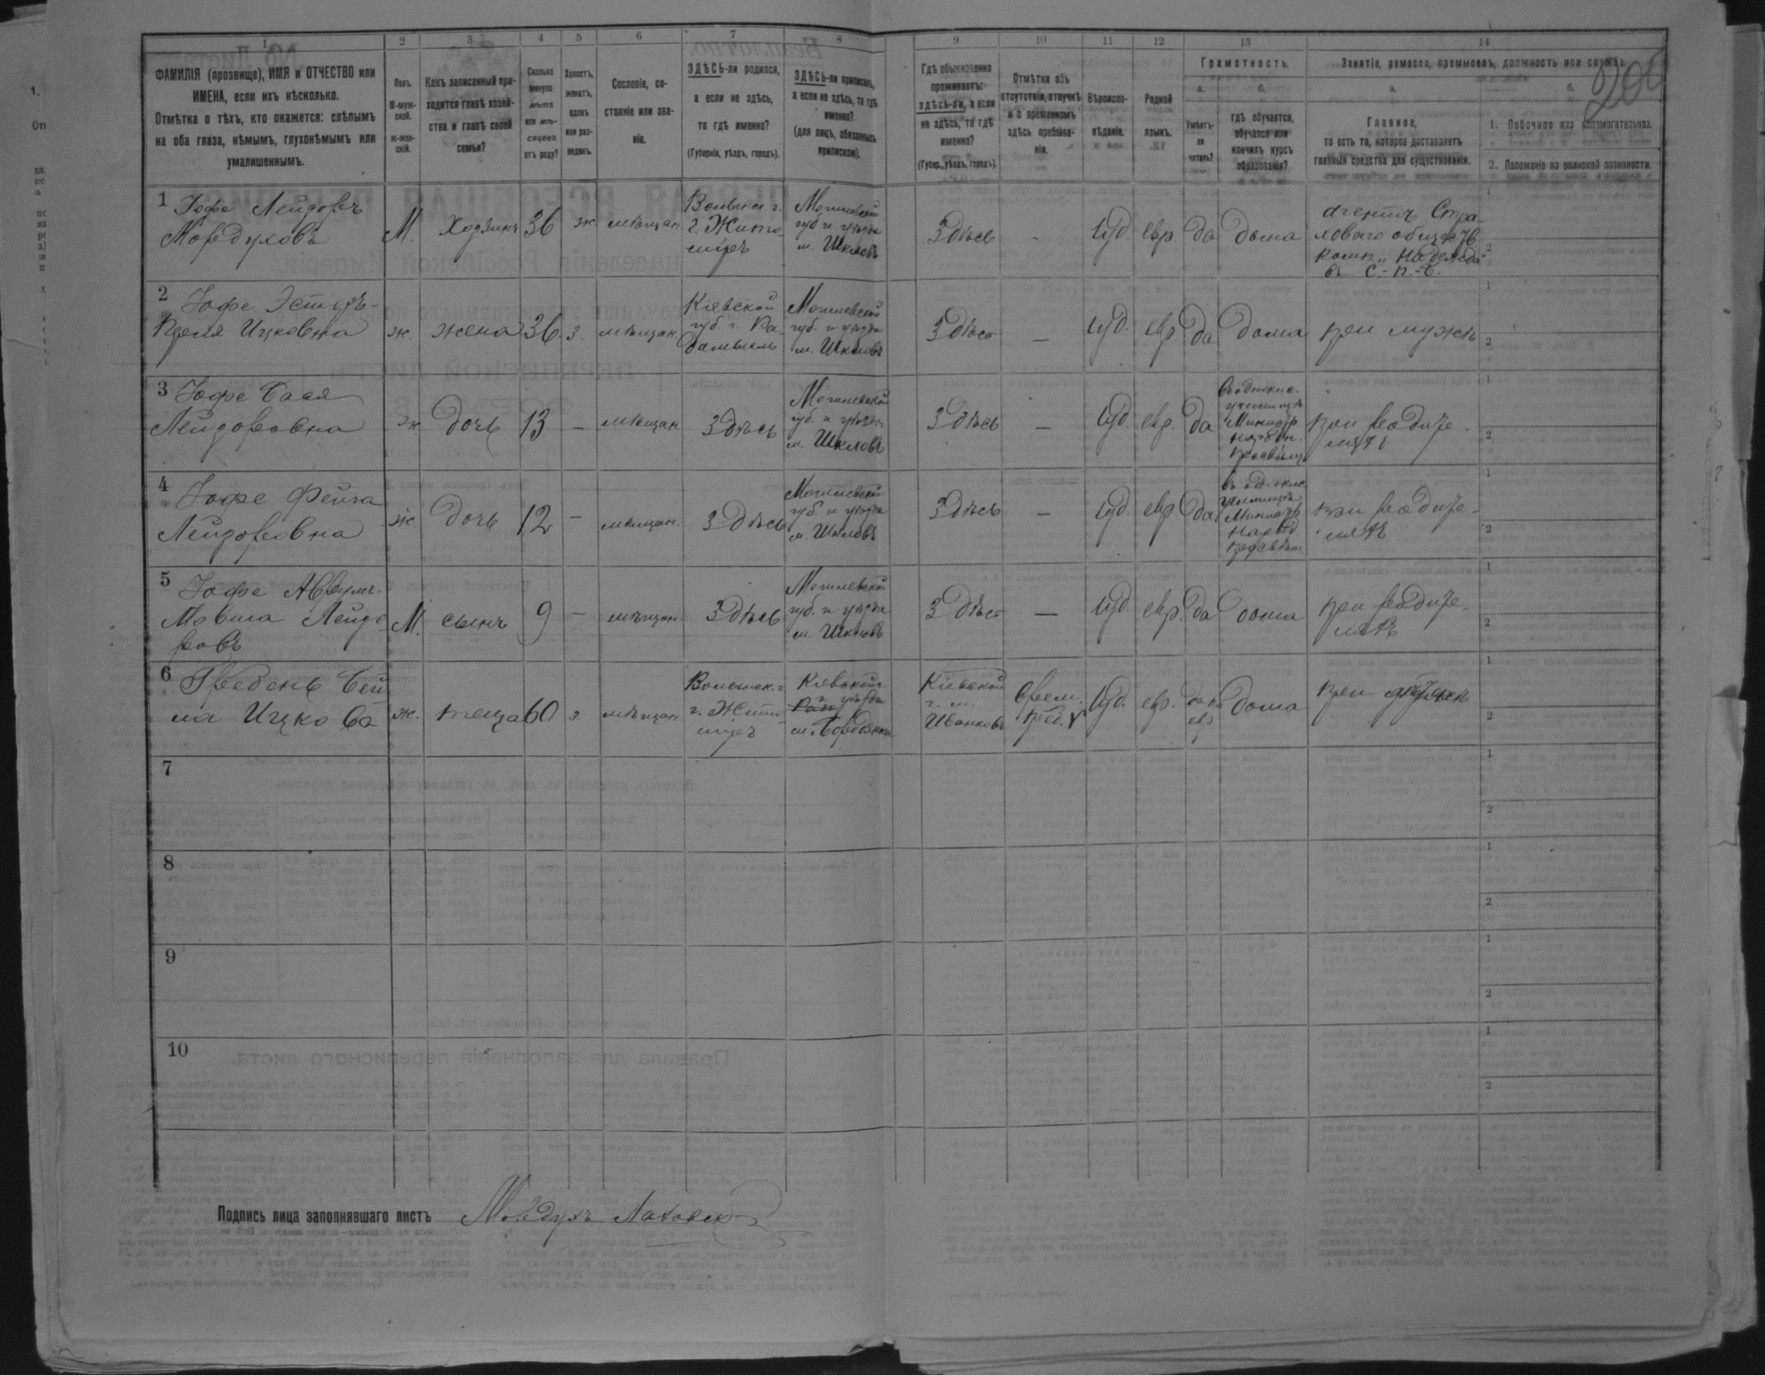 200
1 2 3 4 5 6 7 8 9 10 11 12 13 14
ФАМИЛІЯ (прозвище), ИМЯ и ОТЧЕСТВО или
ИМЕНА, если ихъ нѣсколько.
Отмѣтка о тѣхъ, кто окажется: слѣпымъ
на оба глаза, нѣмымъ, глухонѣмымъ или
умалишеннымъ.
Полъ.
М-муж-
ской.
ж-жен-
скій.
Какъ записанный при-
ходится главѣ хозяй-
ства и главѣ своей
семьи?
Сколько
минуло
лѣтъ
или мѣ-
сяцевъ
отъ роду?
Холостъ,
женатъ,
вдовъ
или раз-
веденъ.
Сословіе, со-
стояніе или зва-
ніе.
ЗДѢСЬ-ли родился,
а если не здѣсь,
то гдѣ именно?
(Губернія, уѣздъ, городъ).
ЗДѢСЬ-ли приписанъ,
а если не здѣсь, то гдѣ
именно?
(для лицъ, обязанныхъ
припискою).
Гдѣ обыкновенно
проживаетъ:
здѣсь-ли, а если
не здѣсь, то гдѣ
именно?
(Губер., уѣздъ, городъ).
Отмѣтка объ
отсутствіи, отлучкѣ
и о временномъ
здѣсь пребыва-
ніи.
Вѣроиспо-
вѣданіе.
Родной
языкъ.
Грамотность.
а.
Умѣетъ-
ли
читать?
б.
гдѣ обучается,
обучался или
кончилъ курсъ
образованія?
Занятіе, ремесло, промыселъ, должность или служба.
а.
Главное,
то есть то, которое доставляетъ
главныя средства для существованія.
б.
1. Побочное или вспомогательное.
2. Положеніе по воинской повинности.
1 Іофе Лейзоръ
Мордуховъ
М. Хозяинъ 36 ж мѣщан.
Волынск. г.
г. Жито-
міръ
Могилевской
губ. и уѣзда
м. Шкловъ
Здѣсь - Іуд. евр. да дома
агентъ Стра-
ховаго общества
комп. „Надежда"
въ С.-П.-б.
2 Іофе Эстеръ-
Ицковна
ж. жена 36 з. мѣщан.
Кіевской
губ. г. Ра-
домысль
Могилевской
губ. и уѣзда
м. Шкловъ
Здѣсь — Іуд. евр. да дома при мужѣ
3 Іофе Бася
Лейзоровна
ж дочь 13 — мѣщан. Здѣсь
Могилевской
губ. и уѣзда
м. Шкловъ
Здѣсь — Іуд. евр. да
училищѣ
Министр.
Народн.
Просвѣщ.
при родите-
ляхъ
4 Іофе Фейга
Лейзоровна
ж. дочь 12 — мѣщан. Здѣсь
Могилевской
губ. и уѣзда
м. Шкловъ
Здѣсь — Іуд. евр. да
училищѣ
Министр.
Народ.
Просвѣщ.
при родите-
ляхъ
5 Іофе Аврумъ-
Мовша Лейзо
ровъ
М. сынъ 9 — мѣщан. Здѣсь
Могилевской
губ. и уѣзда
м. Шкловъ
Здѣсь — Іуд. евр. да дома
при родите-
ляхъ
6 Гребень Бей
ла Ицко
ж. теща 60 з. мѣщан.
Волынск. г.
г. Жито-
міръ
Кіевской г.
и уѣзда
м. Бородянка
Кіевской
г. м.
Иванковъ
Врем.
преб.
Іуд. евр. дома
при
7
8
9
10
Подпись лица заполнявшаго листъ Мордухъ